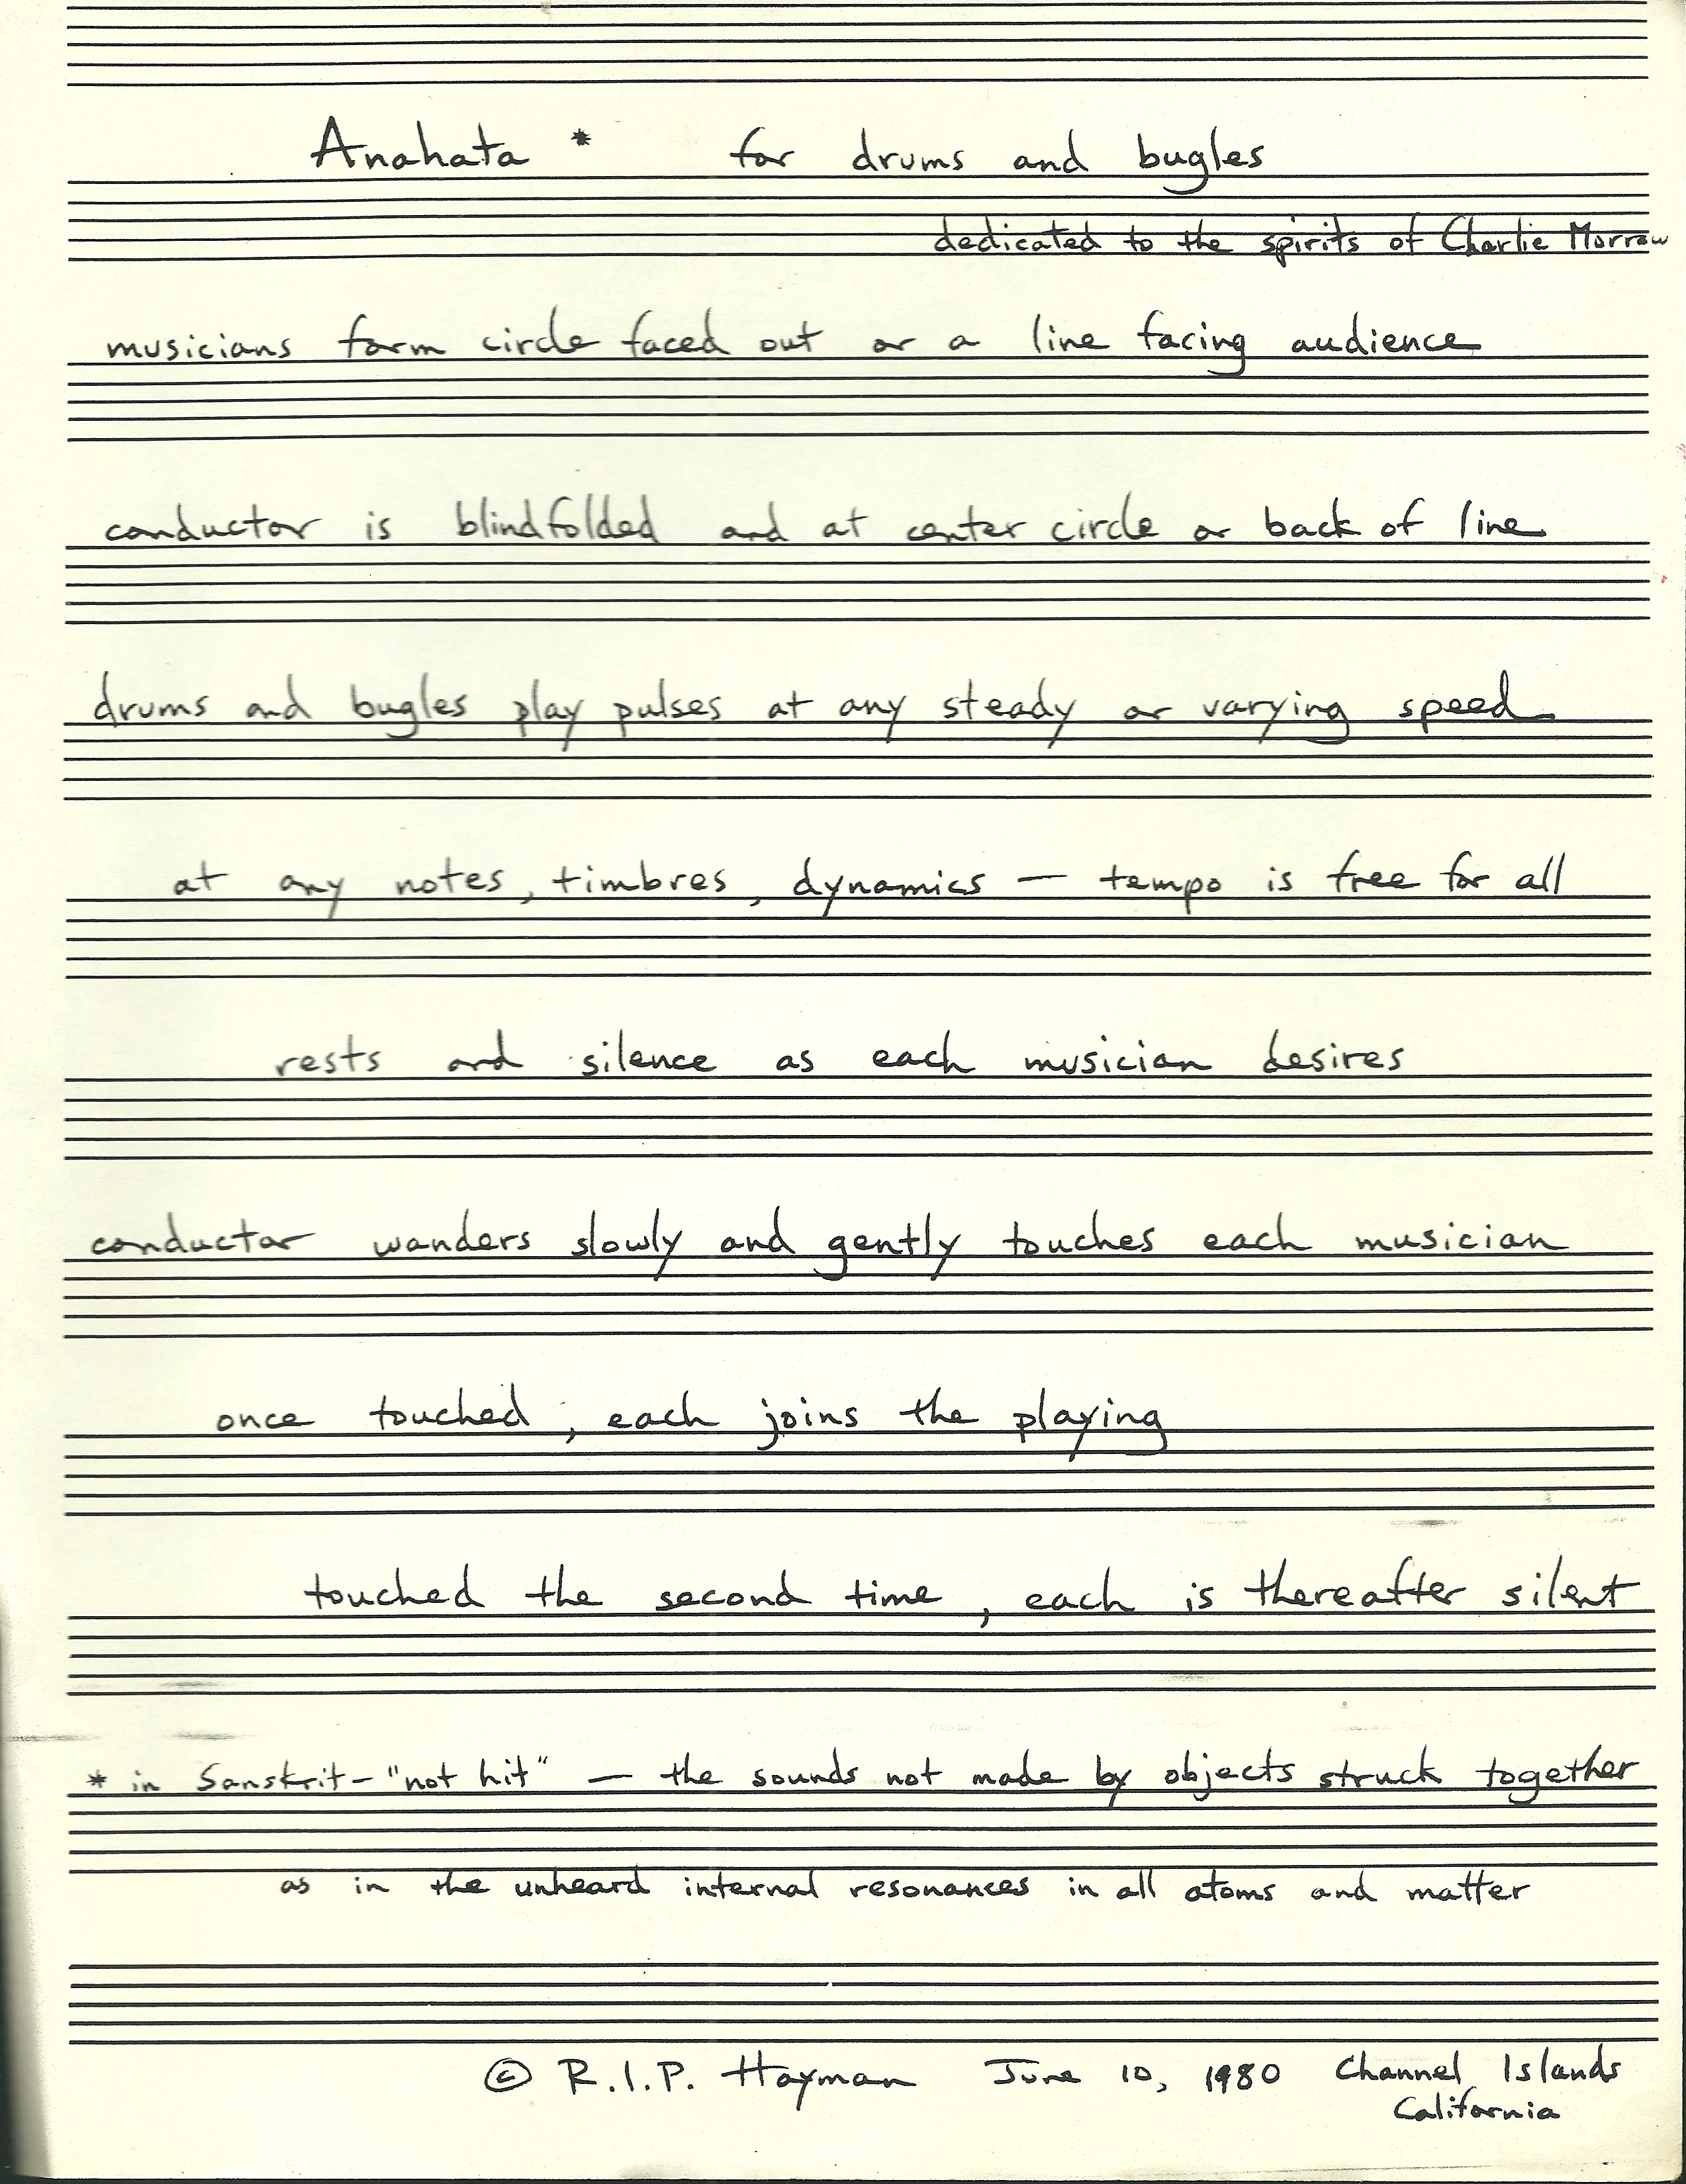 Anahata * for drums and bugles
dedicated to the spirits of Charlie Morrow
musicians form circle faced out or a line facing audience
conductor is blindfolded and at center circle or back of line
drums and bugles play pulses at any steady or varying speed
at any notes, timbres, dynamics — tempo is free for all
rests and silence as each musician desires
conductor wanders slowly and gently touches each musician
once touched, each joins the playing
touched the second time, each is thereafter silent
* in Sanskrit - "not hit" — the sounds not made by objects struck together
as in the unheard internal resonances in all atoms and matter
© R.I.P. Hayman June 10, 1980 Channel Islands
California